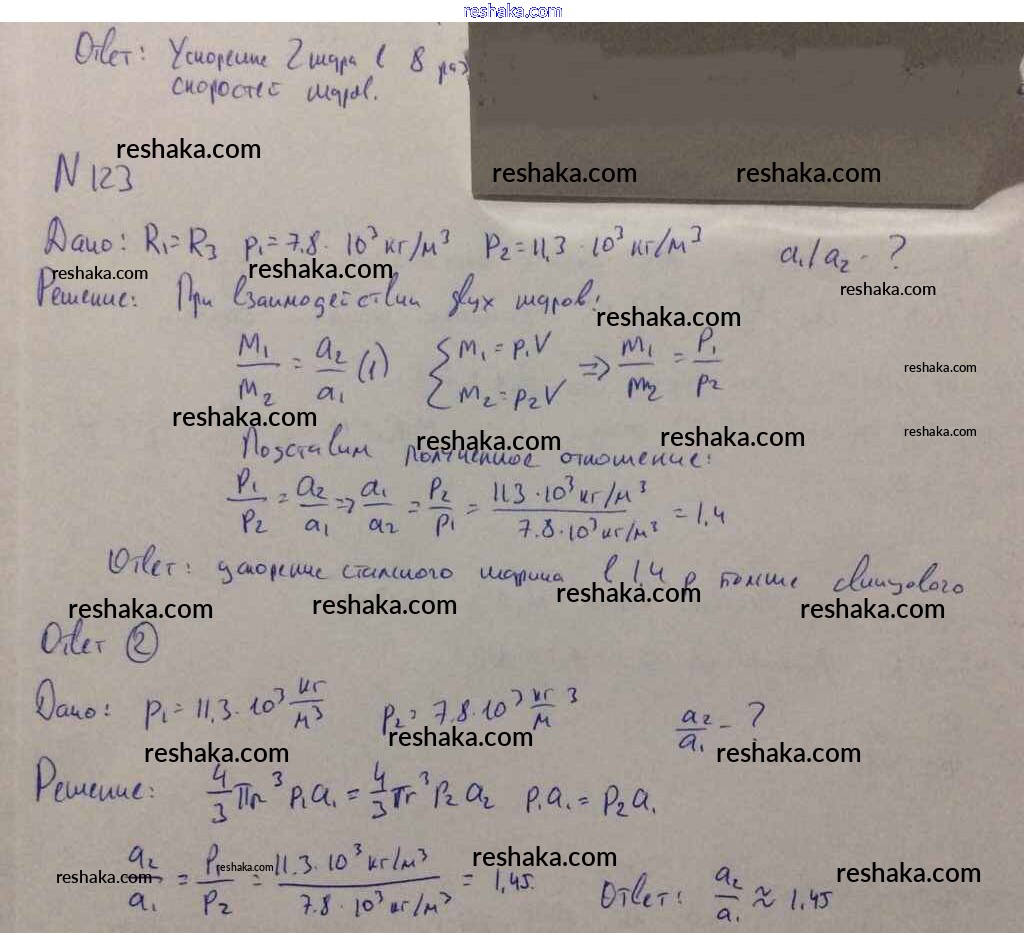 reshaka.com
Ответ: Ускорение 2 шара в 8 раз
скоростей шаров.
reshaka.com
N 123
reshaka.com reshaka.com
Дано: R₁=R₃ ρ₁=7.8·10³кг/м³ ρ₂=11,3·10³кг/м³ a₁/a₂-?
reshaka.com reshaka.com reshaka.com
Решение: При взаимодействии двух шаров:
reshaka.com
M₁/M₂ = a₂/a₁ (1) { M₁=ρ₁V M₂=ρ₂V => m₁/m₂ = ρ₁/ρ₂
reshaka.com
reshaka.com reshaka.com reshaka.com reshaka.com
Подставим полученное отношение:
ρ₁/ρ₂ = a₂/a₁ => a₁/a₂ = ρ₂/ρ₁ = 11.3·10³кг/м³ / 7.8·10³кг/м³ = 1,4
Ответ: ускорение стального шарика в 1,4 р больше свинцового
reshaka.com reshaka.com reshaka.com reshaka.com
Ответ ②
Дано: ρ₁=11,3·10³ кг/м³ ρ₂=7.8·10³ кг/м ³ a₂/a₁ - ?
reshaka.com reshaka.com reshaka.com
Решение: 4/3 πr³ρ₁a₁ = 4/3 πr³ρ₂a₂ ρ₁a₁=ρ₂a₁
reshaka.com reshaka.com reshaka.com reshaka.com
a₂/a₁ = ρ₁/ρ₂ = 11.3·10³кг/м³ / 7.8·10³кг/м³ = 1,45. Ответ: a₂/a₁ ≈ 1.45